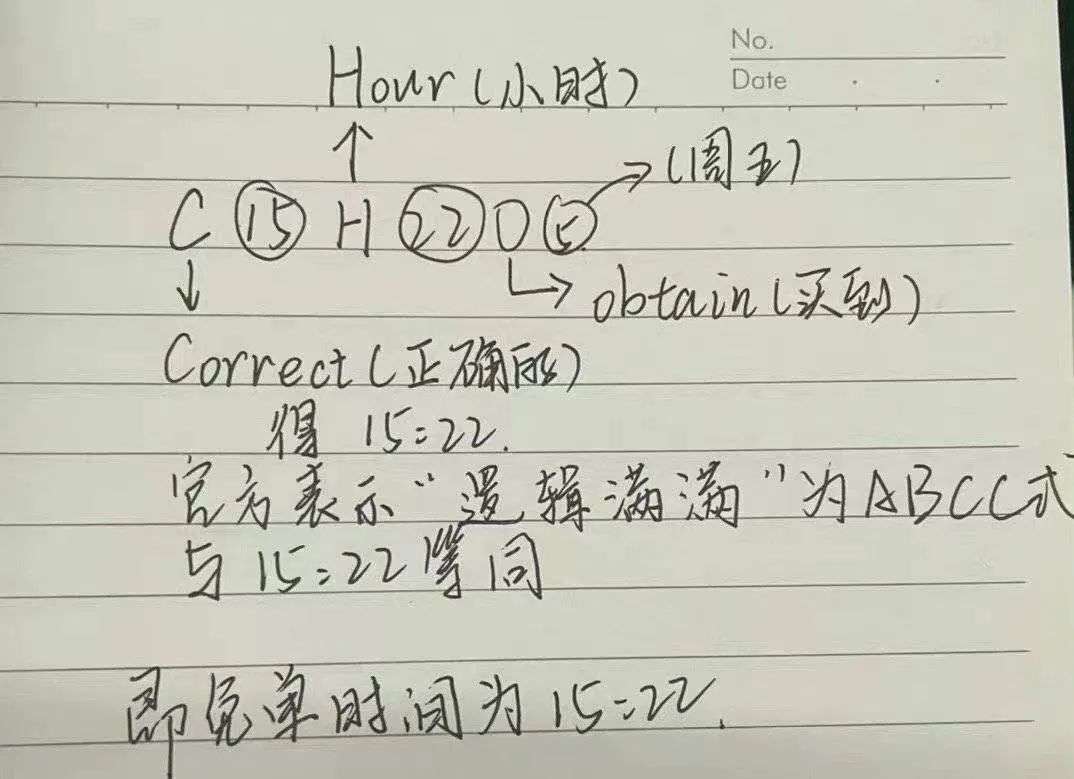 No.
Date
Hour(小时)
(周五)
C 15 H 22 O 5
obtain(买到)
Correct(正确的)
得 15:22.
官方表示“逻辑满满”为ABCC式
与15:22等同
即免单时间为15:22.